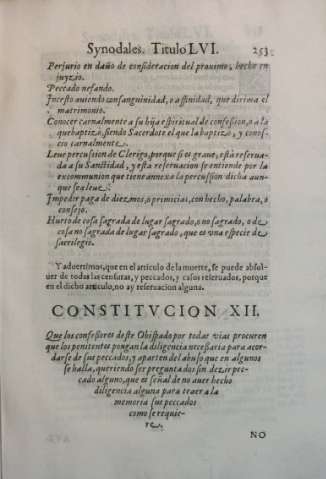 Synodales. Titulo LVI. 253
Perjurio en daño de consideracion del proximo, hecho en
juyzio.
Peccado nefando.
Incesto auiendo consanguinidad, o affinidad, que dirima el
matrimonio.
Conocer carnalmente a su hija espiritual de confession, o a la
que baptizò, siendo Sacerdote el que la baptizò, y conos-
cio carnalmente.
Leue percusion de Clerigo, porque si es graue, està reserua-
da a su Santidad, y esta reseruacion se entiende por la
excomunion que tiene annexa la percussion dicha aun-
que sea leue.
Impedir paga de diezmos, o primicias, con hecho, palabra, o
consejo.
Hurto de cosa sagrada de lugar sagrado, o no sagrado, o de
cosa no sagrada de lugar sagrado, que es vna especie de
sacrilegio.
Y aduertimos, que en el articulo de la muerte, se puede absol-
uer de todas las censuras, y peccados, y casos reseruados, porque
en el dicho articulo, no ay reseruacion alguna.
CONSTITVCION XII.
Que los confessores deste Obispado por todas vias procuren
que los penitentes pongan la diligencia necessaria para acor-
darse de sus peccados, y aparten del abuso que en algunos
se halla, queriendo ser preguntados sin dezir pec-
cado alguno, que es señal de no auer hecho
diligencia alguna para traer a la
memoria sus peccados
como se requie-
re.
NO